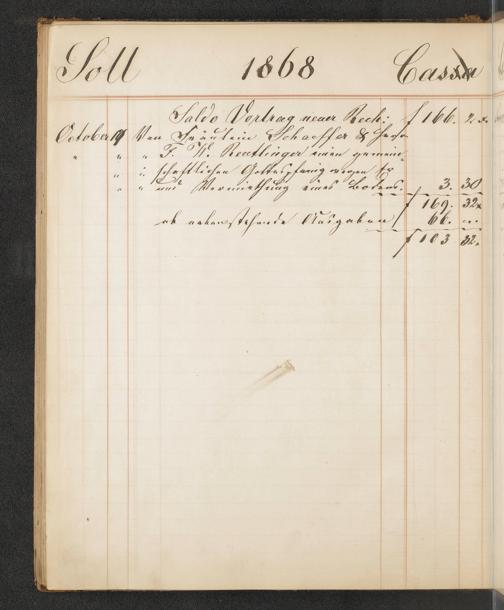 Soll 1868 Cassa
Saldo Vortrag neuer Rech: f 166. 2 x.
October 9 Von Fräulein Schaeffer & Herrn
" " " F. W. Reutlinger einen gemein-
" " schaftlichen Gottespfennig wegen
" " " und Vermiethung eines Bodens. 3. 30
f 169. 32 x
ab nebenstehende Ausgaben 66. —
f 103 32.